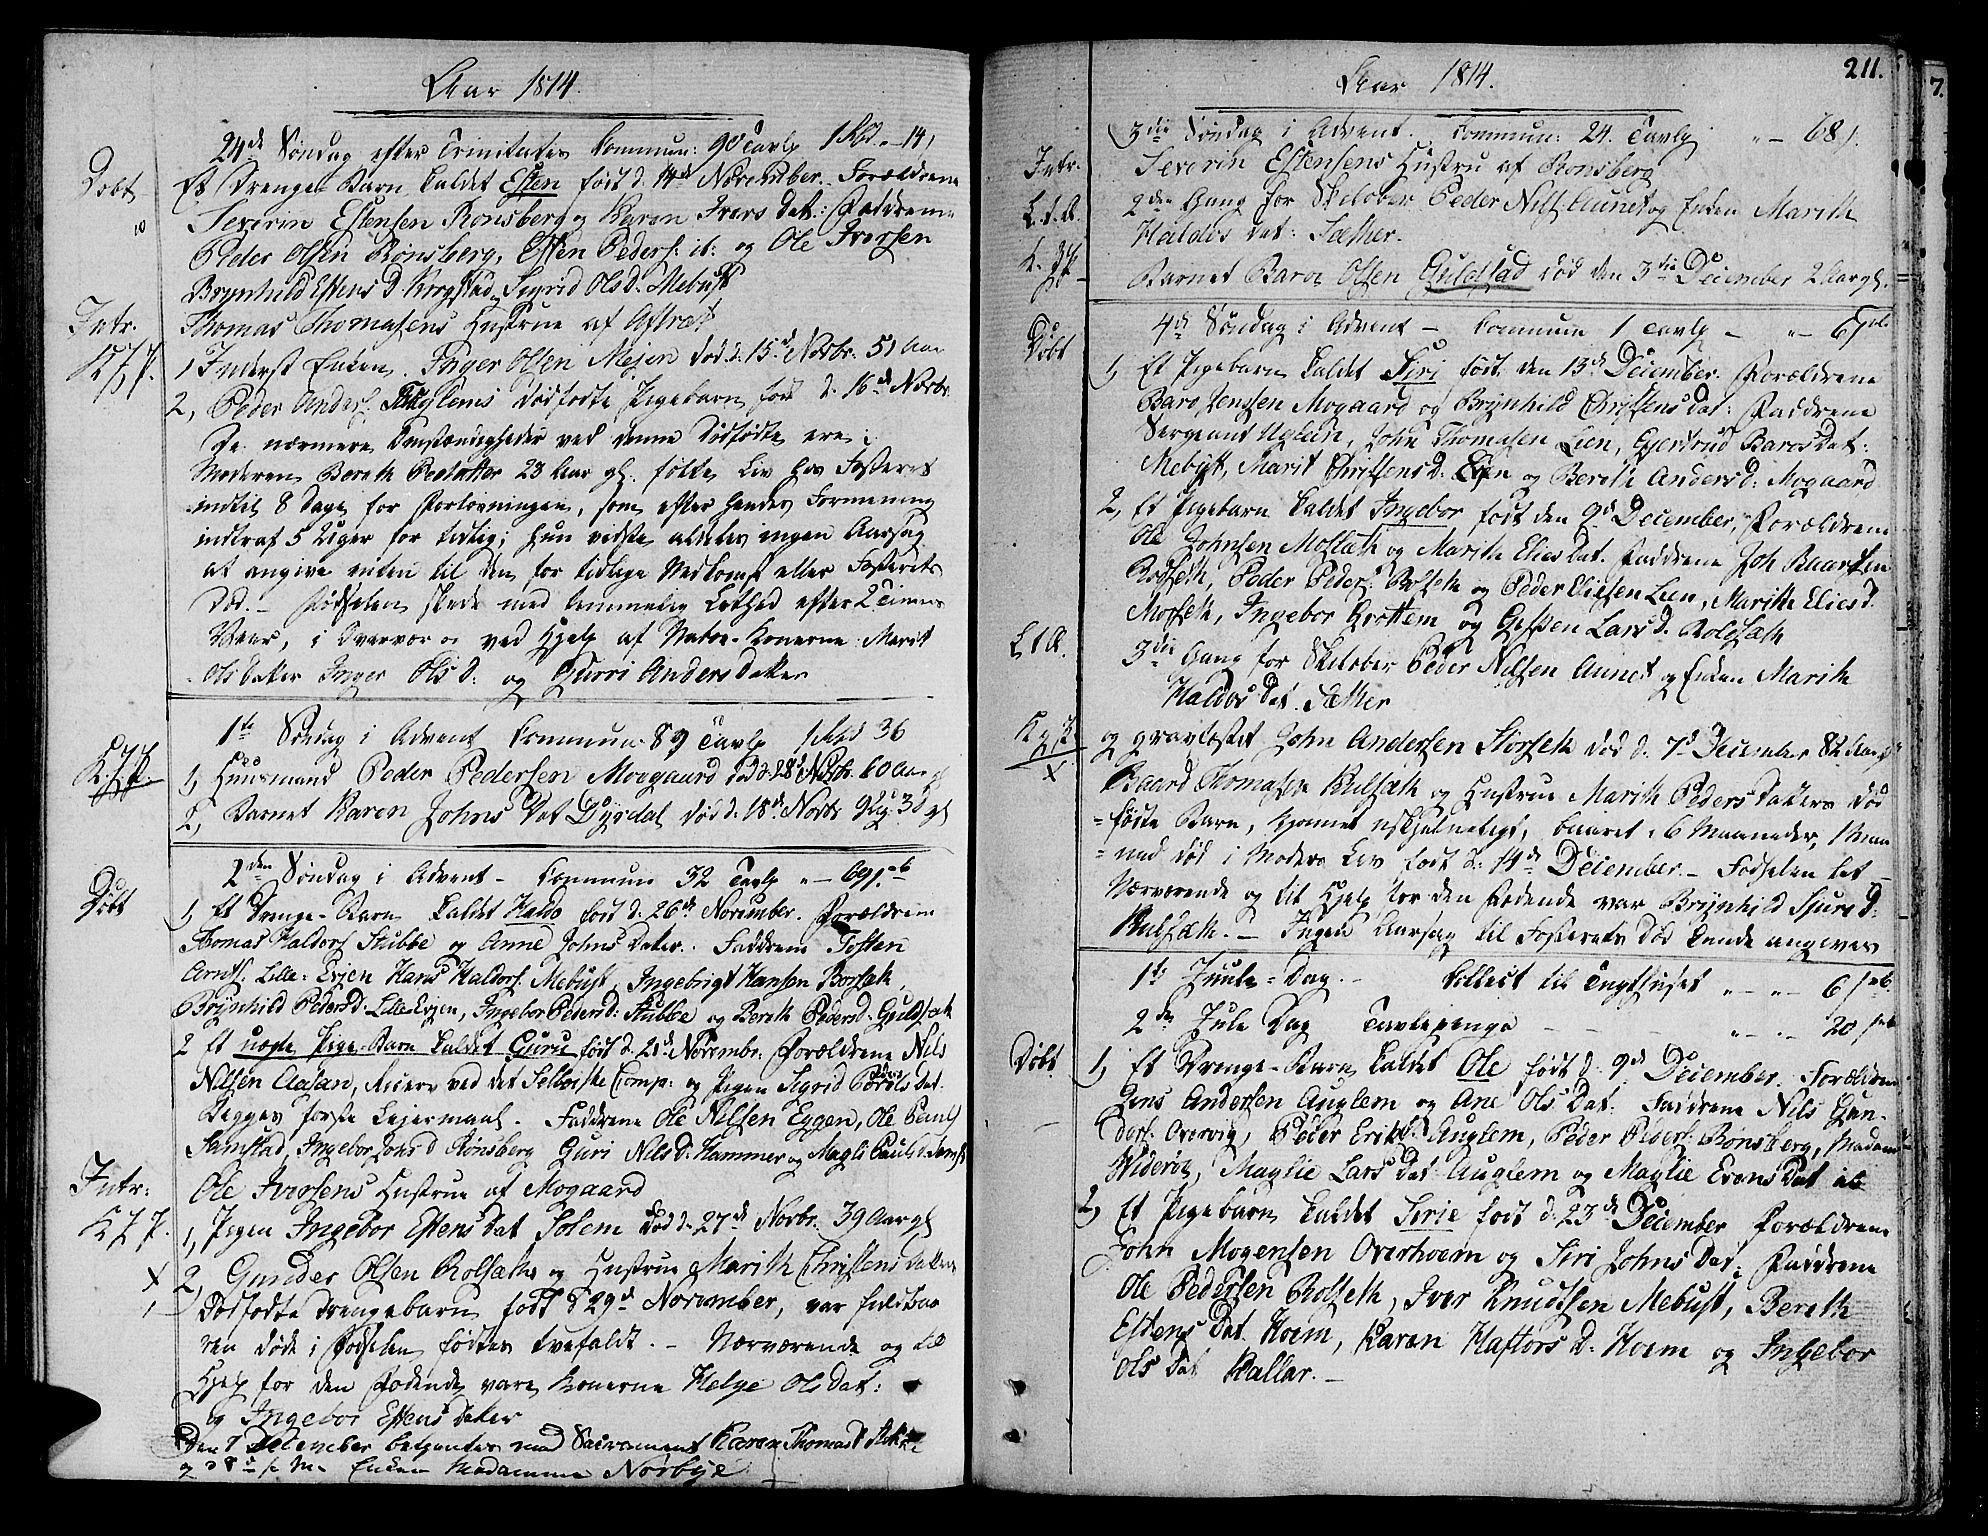 Aar 1814.
24de Søndag efter Trinitatis Commun: 90 Tavlp 1 Rbd. - 14
Døbt
Et Drenge-Barn kaldet Esten født d. 14de November. Forældrene
Severin Estensen Rønsberg og Karen Ivers Dat: Faddrene
Peder Olsen Rønsberg, Esten Peders: ib: og Ole Iversen
Brynhild Estens D Krogstad, Sigrid Ols D. Mebust
Intr.
Thomas Thomasens Hustrue af Aftræt
K.J.P.
1 Inderst Enken Inger Olsen Mejen død d. 15de Novbr. 51 Aar
2, Peder Anders: Teiglems dødfødte Pigebarn født d. 16de Novbr.
De nærmere Omstændigheder ved denne Dødfødte ere:
Moderen Bereth Pedsatter 23 Aar gl. følte Liv hos Fosteret
indtil 8 Dage for Forløsningen, som efter hendes Formening
indtraf 5 Uger for tidlig; hun vidste aldeles ingen Aarsag
at angive enten til den for tidlige Nedkomst eller Fosterets
Død. - Fødselen skede med temmelig Lethed efter 2 Timers
Veer, i Overvær og ved Hjelp af Naboe-Konerne Marit
Olsdatter Inger Ols D: og Gurri Anders Datter
1te Søndag i Advent Commun: 89 Tavlp 1 Rbd 36
K.J.P.
1, Huusmand Peder Pedersen Moegaard død d. 28de Novbr. 60 Aar gl
2, Barnet Karen Johns Dat Dyrdal død d. 18de Novbr 9 Ug. 3 D gl
2den Søndag i Advent - Commun 32 Tavlp " - 69
Døbt
1, Et Drenge-Barn kaldet Haldo født d. 26de November. Forældrene
Thomas Haldors: Stubbe og Anne Johns Datter. Faddrene Tosten
Arnts: Lille-Evjen Hans Haldors: Mebust, Ingebrigt Hansen Borseth,
Brynhild Peders D. Lille Evjen, Ingebor Peders D: Stubbe og Bereth Peders D. Guldseth
2 Et uægte Pige-Barn kaldet Guru født d. 21de Novembr: Forældrene Nils
Nilsen Aasan, Recrut ved det Selboeske Comp: og Pigen Sigrid Ols Dat.
Begges første Leiermaal. Faddrene Ole Nilsen Eggen, Ole Pauls
Samstad, Ingebor Johs D Rønsberg Guri Nils D: Hammer og Magli Pauls D.
Intr:
Ole Iversens Hustrue af Mogaard
K.J.P.
1, Pigen Ingebor Estens Dat Solem død d. 27de Novbr. 39 Aar gl
X
2, Gunder Olsen Rolseths og Hustrue Marith Christens Datters
dødfødte Drengebarn født d 29de November, var fuldbaa
ren døde i Fødselen fødtes tvefaldt. - Nærværende og til
Hjelp for den Fødende vare Konerne Helge Ols Dat:
og Ingebor Estens Datter
Den 7 December betjentes med Sacrament Karen Thomas D
Enken Madamme Norbye
Aar 1814.
211.
3die Søndag i Advent. Commun: 24. Tavlp " - 68
Intr.
Severin Estensens Hustru af Rønsberg
L.t.Æ.
2den Gang for Skeløber Peder Nils Aunet og Enken Marith
Haldos Dat: Sæther.
K.J.P.
Barnet Baroe Olsen Guldstad død den 3die December 2 Aar gl.
4de Søndag i Advent - Commun 1 Tavlp - " - 67
Døbt
1, Et Pigebarn kaldet Siri født den 13de December. Forældrene
Baro Jenssen Mogaard og Brynhild Christens Dat: Faddrene
Sergeant Uglein, John Thomasen Lien, Gjertrud Baros Dat:
Mebyst, Marit Christens D. Evjen og Bereth Anders D: Mogaard
2, Et Pigebarn kaldet Ingebor født den 9de December, Forældrene
Ole Johnsen Moslæth og Marith Elies Dat. Faddrene Joh Baarsen
Rolseth, Peder Peders: Rolseth og Peder Eliesen Lien, Marith Elies D.
Morseth, Ingebor Grøttem og Lars D. Rolseth
L.t.Æ.
3die Gang for Skeløber Peder Nilsen Aunet og Enken Marith
Haldos Dat. Sæther
K.J.P.
og gravlagt John Andersen Storseth død d. 7de December 82 Aar gl
X
Baard Thomasen Kulseth og Hustrue Marith Peders Datters død
fødte Barn, Kjønnet uskjelneligt, baaret 6 Maaneder, 1 Maa
ned død i Moders Liv født d: 14de December. - Fødselen let
Nærværende og til Hjelp for den Fødende var Brynhild Sjurs D:
Kulseth. - Ingen Aarsag til Fosterets Død kunde angives
1te Juule-Dag. - Collect til Tugthuset " - " - 6
2den Jule Dag Tavlepenge - - - " - " 20
Døbt
1, Et Drenge-Barn kaldet Ole født d. 9de December. Forældrene
Jens Andersen Auglem og Ane Ols Dat: Faddrene Nils Gun-
ders: Overvig, Peder Eriks: Auglem, Peder Peders: Rønsberg, Madam
Widerøe, Maglie Lars Dat Auglem og Maglie Evens Dat ib
2, Et Pigebarn kaldet Sirie født d. 23de December Forældrene
John Mogensen Overhoem og Siri Johns Dat: Faddrene
Ole Pedersen Rolseth, Iver Knudtsen Mebust, Bereth
Estens Dat. Hoem, Karen Haftors D. Hoem og Ingebor
Ols Dat Kallar. -